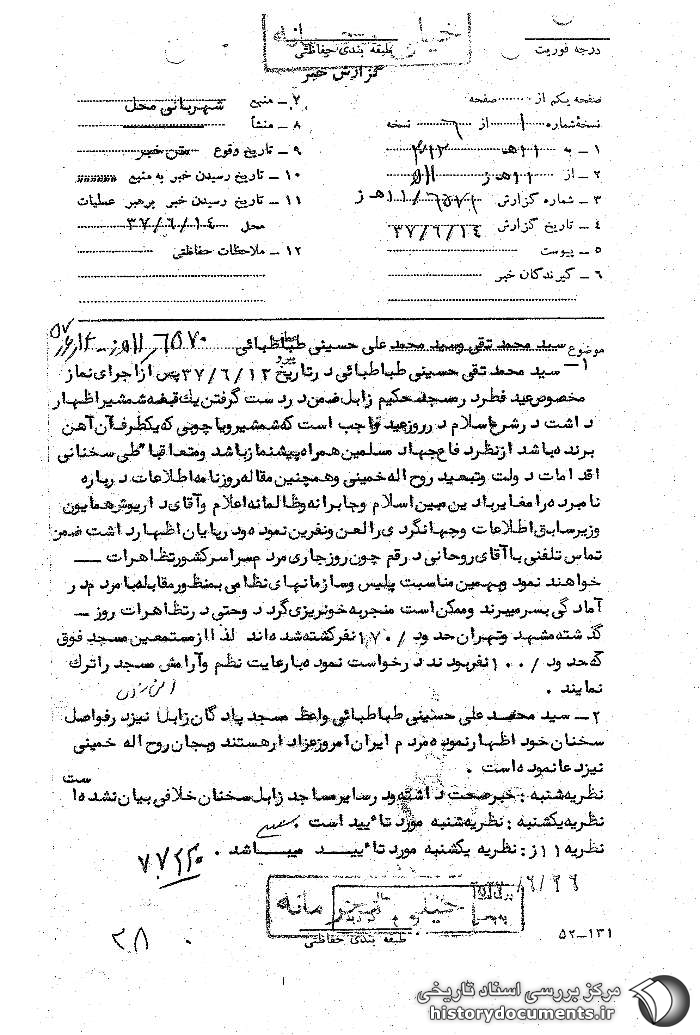 خیلی محرمانه
درجه فوریت
طبقه بندی حفاظتی
گزارش خبر
صفحه یکم از صفحه
نسخهٔ شماره ۱ از ۶ نسخه
۱ – به ۱۱ هـ ۳۱۲
۲ – از ۱۱ هـ ز
۳ – شماره گزارش ۶۵۷۰ / ۱۱ هـ ز
۴ – تاریخ گزارش ۳۷/۶/۱۴
۵ – پیوست
۶ – گیرندگان خبر
۷ – منبع شهربانی محل
۸ – منشأ
۹ – تاریخ وقوع متن خبر
۱۰ – تاریخ رسیدن خبر به منبع
۱۱ – تاریخ رسیدن خبر برهبر عملیات
محل ۳۷/۶/۱۴
۱۲ – ملاحظات حفاظتی
موضوع سید محمد تقی و سید محمد علی حسینی طباطبائی ۶۵۷۰
۱– سید محمد تقی حسینی طباطبائی در تاریخ ۳۷/۶/۱۳ پس از اجرای نماز
مخصوص عید فطر در مسجد حکیم زابل ضمن در دست گرفتن یك قبضه شمشیر اظهار
داشت در شرع اسلام در روز عید واجب است که شمشیر و یا چوبی که یکطرف آن آهن
برنده باشد از نظر دفاع جهاد مسلمین همراه پیشنماز باشد و متعاقبا" طی سخنانی
اقدامات دولت و تبعید روح اله خمینی و همچنین مقاله روزنامه اطلاعات درباره
نامبرده را مغایر با دین مبین اسلام و جابرانه و ظالمانه اعلام و آقای داریوش همایون
وزیر سابق اطلاعات و جهانگردی را لعن و نفرین نموده و در پایان اظهار داشت ضمن
تماس تلفنی با آقای روحانی در قم چون روز جاری مردم سراسر کشور تظاهرات ــ
خواهند نمود و بهمین مناسبت پلیس و سازمانهای نظامی بمنظور مقابله با مردم در
آمادگی بسر میبرند و ممکن است منجر به خونریزی گردد و حتی در تظاهرات روز –
گذشته مشهد و تهران حدود /۱۷۰ نفر کشته شده اند لذا از مستمعین مسجد فوق
که حدود /۱۰۰ نفر بودند درخواست نموده با رعایت نظم و آرامش مسجد را ترك
نمایند .
۲ – سید محمد علی حسینی طباطبائی واعظ مسجد پادگان زابل نیز در فواصل
سخنان خود اظهار نموده مردم ایران امروز عزادار هستند و بجان روح اله خمینی
نیز دعا نموده است .
نظریه شنبه : خبر صحت داشته و در سایر مساجد زابل سخنان خلافی بیان نشده است
نظریه یکشنبه : نظریه شنبه مورد تائید است .
نظریه ۱۱ ز : نظریه یکشنبه مورد تائید میباشد .
خیلی محرمانه
طبقه بندی حفاظتی
۵۲–۱۳۱
۲۸
۱
مرکز بررسی اسناد تاریخی
historydocuments.ir